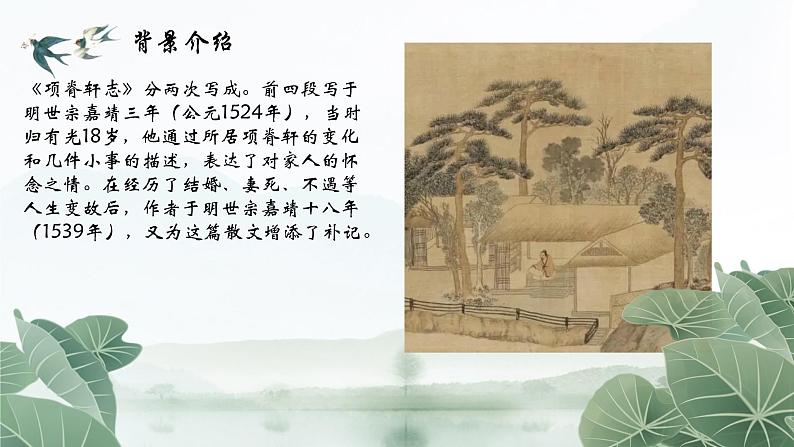 背景介绍
《项脊轩志》分两次写成。前四段写于
明世宗嘉靖三年（公元1524年），当时
归有光18岁，他通过所居项脊轩的变化
和几件小事的描述，表达了对家人的怀
念之情。在经历了结婚、妻死、不遇等
人生变故后，作者于明世宗嘉靖十八年
（1539年），又为这篇散文增添了补记。